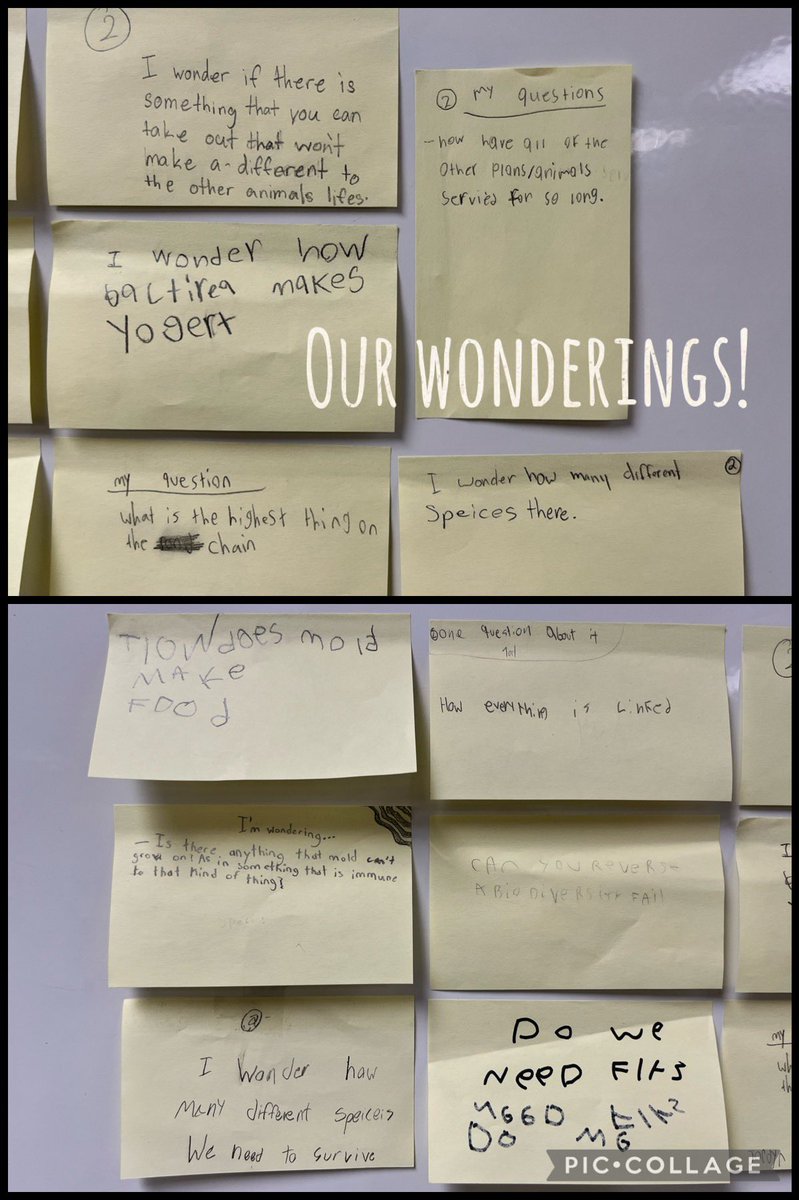 2
I wonder if there is
something that you can
take out that won't
make a different to
the other animals lifes.
2 my questions
- how have all of the
other plans/animals
servies for so long.
I wonder how
bactirea makes
Yogert
OUR WONDERINGS!
my question
what is the highest thing on
the chain
2
I wonder how many different
Speices there.
How does mold
MAKE
FOOd
One question about it
How everything is Linked
I'm wondering...
- Is there anything that mold can't
grow on? As in something that is immune
to that kind of thing?
CAN YOU REVERS
A BIODIVERSITY FAIL
2
I wonder how
many different speiceis
We need to survive
Do we
NeeD
DO
PIC•COLLAGE